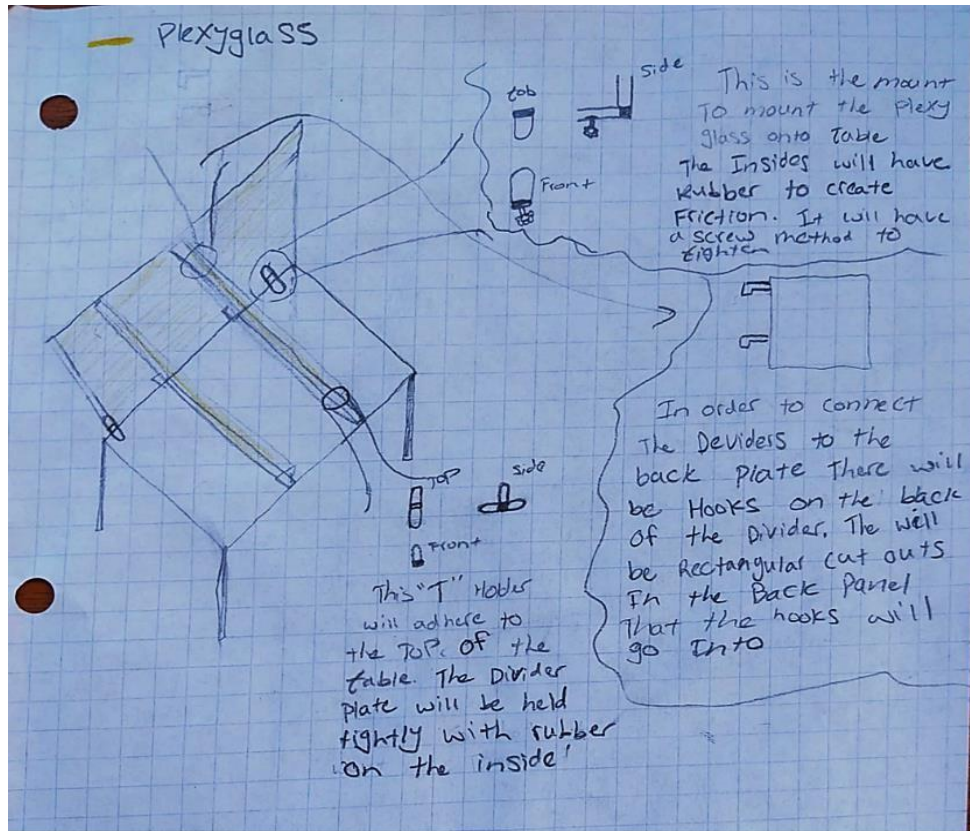 Plexyglass
tob
Side
Front
This is the mount
To mount the Plexy
glass onto Table
The Insides will have
Rubber to create
Friction. It will have
a screw method to
tighten
In order to connect
The Deviders to the
back Plate There will
be Hooks on the back
of the Divider. The will
be Rectangular cut outs
In the Back Panel
That the hooks will
go Into
TOP
Side
Front
This "T" Holder
will adhere to
the Top. of the
table. The Divider
Plate will be held
tightly with rubber
on the inside!